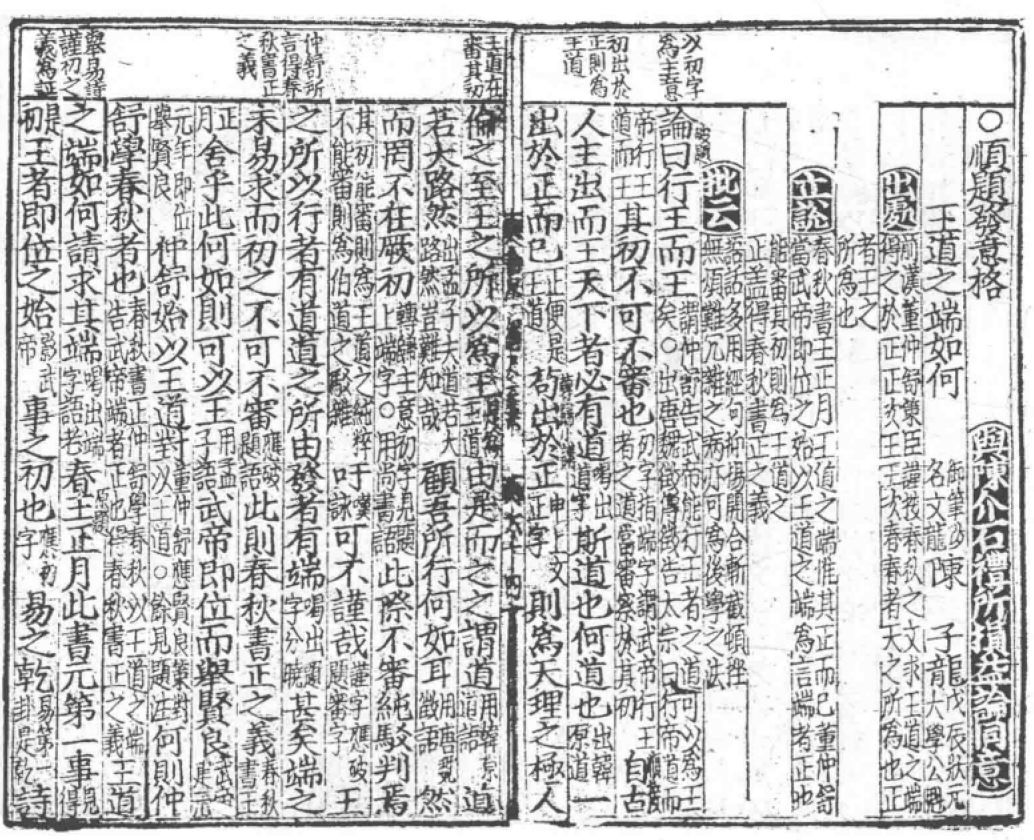 ○順題發意格 與陳介石禮所損益論同意
王道之端如何 陳 子龍 戊辰狀元
名文龍 大學公魁
出處 前漢董仲舒策臣謹按春秋之文求王道之端
得之於正正次王王次春春者天之所為也正
者王之
所為也
立說 春秋書王正月王道之端惟其正而已董仲舒
當武帝即位之始以王道之端為言端者正也
能審其初則為王道之
正蓋得春秋書正之義
批云 語話多用經句抑揚開合斬截頓挫
無煩難冗雜之病亦可為後學之法
以初字
為主意
破題
論曰行王而王 謂仲舒告武帝能行王者之道可以為王
矣○出唐魏徵傳徵告太宗曰行帝道而
帝行王
道而王 其初不可不審也 初字指端字謂武帝行王
者之道當審察於其初 自古
初出於
正則為
王道
人主出而王天下者必有道 喝出
道字 斯道也何道也 出韓
原道 一
出於正而已 正便是
王道 苟出於正 正字 則為天理之極人
王道在
審其初
倫之至王之所以為王 由是而之之謂道 用韓原
道語 道
若大路然 出孟子夫道若大
路然豈難知哉 顧吾所行何如耳 用唐魏
徵語 然
而罔不在厥初 轉歸主意初字見題
上端字○用尚書語 此際不審純駁判焉
其初能審則為王道之純粹
不能審則為伯道之駁雜 吁 詠
嘆 可不謹哉 謹字應破
題審字 王
仲舒所
言得春
秋書正
之義
之所以行者有道道之所由發者有端 喝出題
字分曉 甚矣端之
未易求而初之不可不審 應破
題語 此則春秋書正之義 春秋
書王
正
月 舍乎此何如則可以王 用孟
子語 武帝即位而舉賢良 武帝
建元
元年即位
舉賢良 仲舒始以王道對 董仲舒應賢良策對
以王道○餘見題注 何則仲
舒學春秋者也 春秋書正仲舒學春秋以王道之端
告武帝端者正也得春秋書正之義 王道
舉易詩
謹初之
義為証
原題
之端如何請求其端 喝出端
字語老 春王正月此書元第一事 見
得
是
初 王者即位之始 影武
帝 事之初也 應初
字 易之乾 易第一
卦是乾 詩